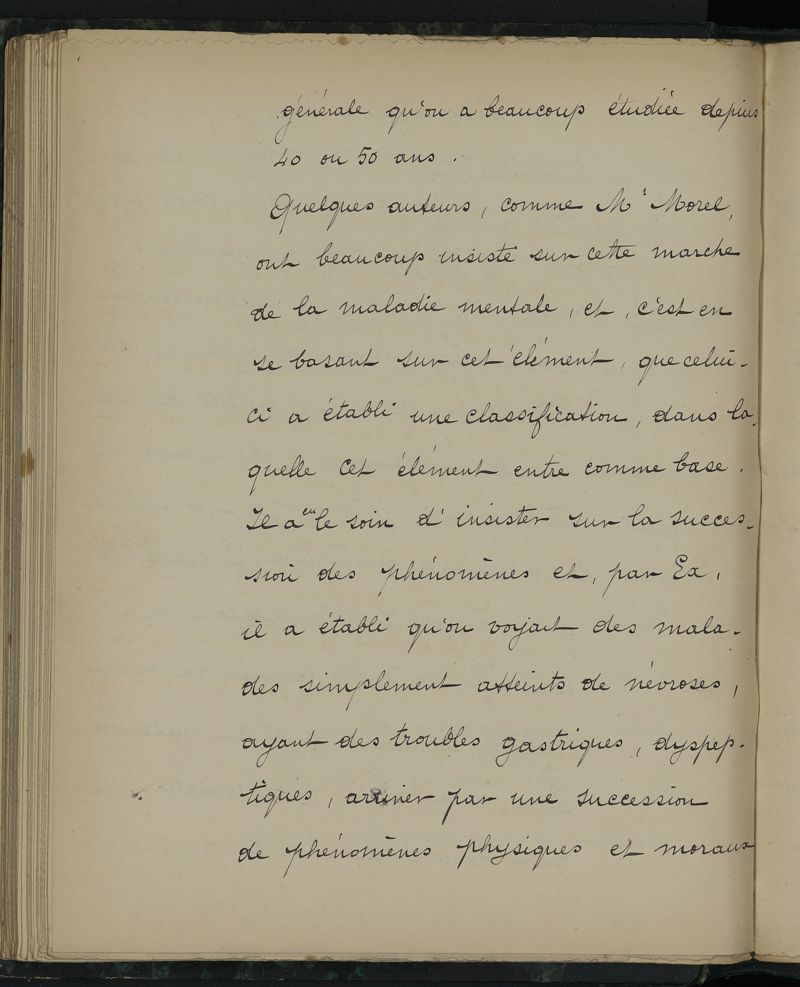 générale qu'on a beaucoup étudiée depius
40 ou 50 ans.
Quelques auteurs, comme Mr Morel,
ont beaucoup insisté sur cette marche
de la maladie mentale, et, c'est en
se basant sur cet élément, que celui-
ci a établi une classification, dans la-
quelle cet élément entre comme base.
Il a eu le soin d'insister sur la succes-
sion des phénomènes et, par Ex,
il a établi qu'on voyait des mala-
des simplement atteints de névroses,
ayant des troubles gastriques, dyspep-
tiques, arriver par une succession
de phénomènes physiques et moraux